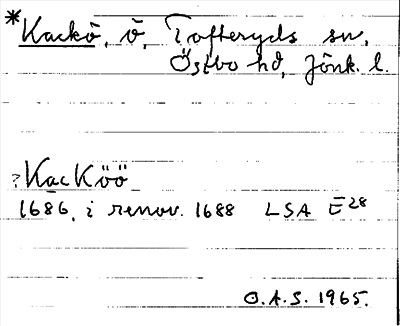 *Kackö, ö, Tofteryds sn,
Östbo hd, Jönk. l.
?KacKöö
1686, i renov. 1688 LSA E28
O.A.S. 1965.